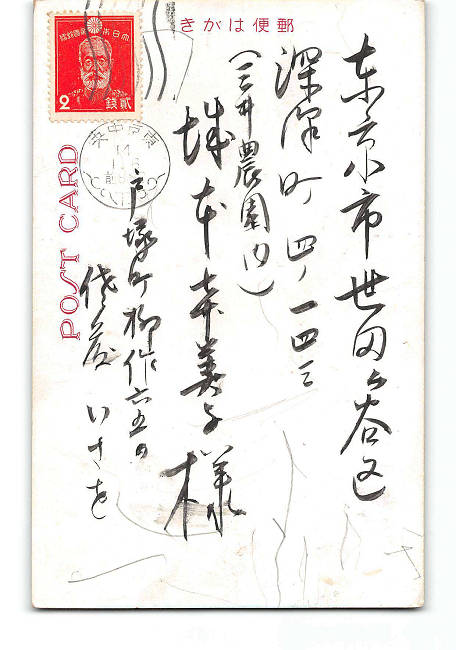 郵便はがき
大日本帝國郵便
2
貳錢
POST CARD
東京市世田ヶ谷区
深澤町四ノ一四三
（三井農園内）
城本奈美子様
戸塚町柳作六五
いさを